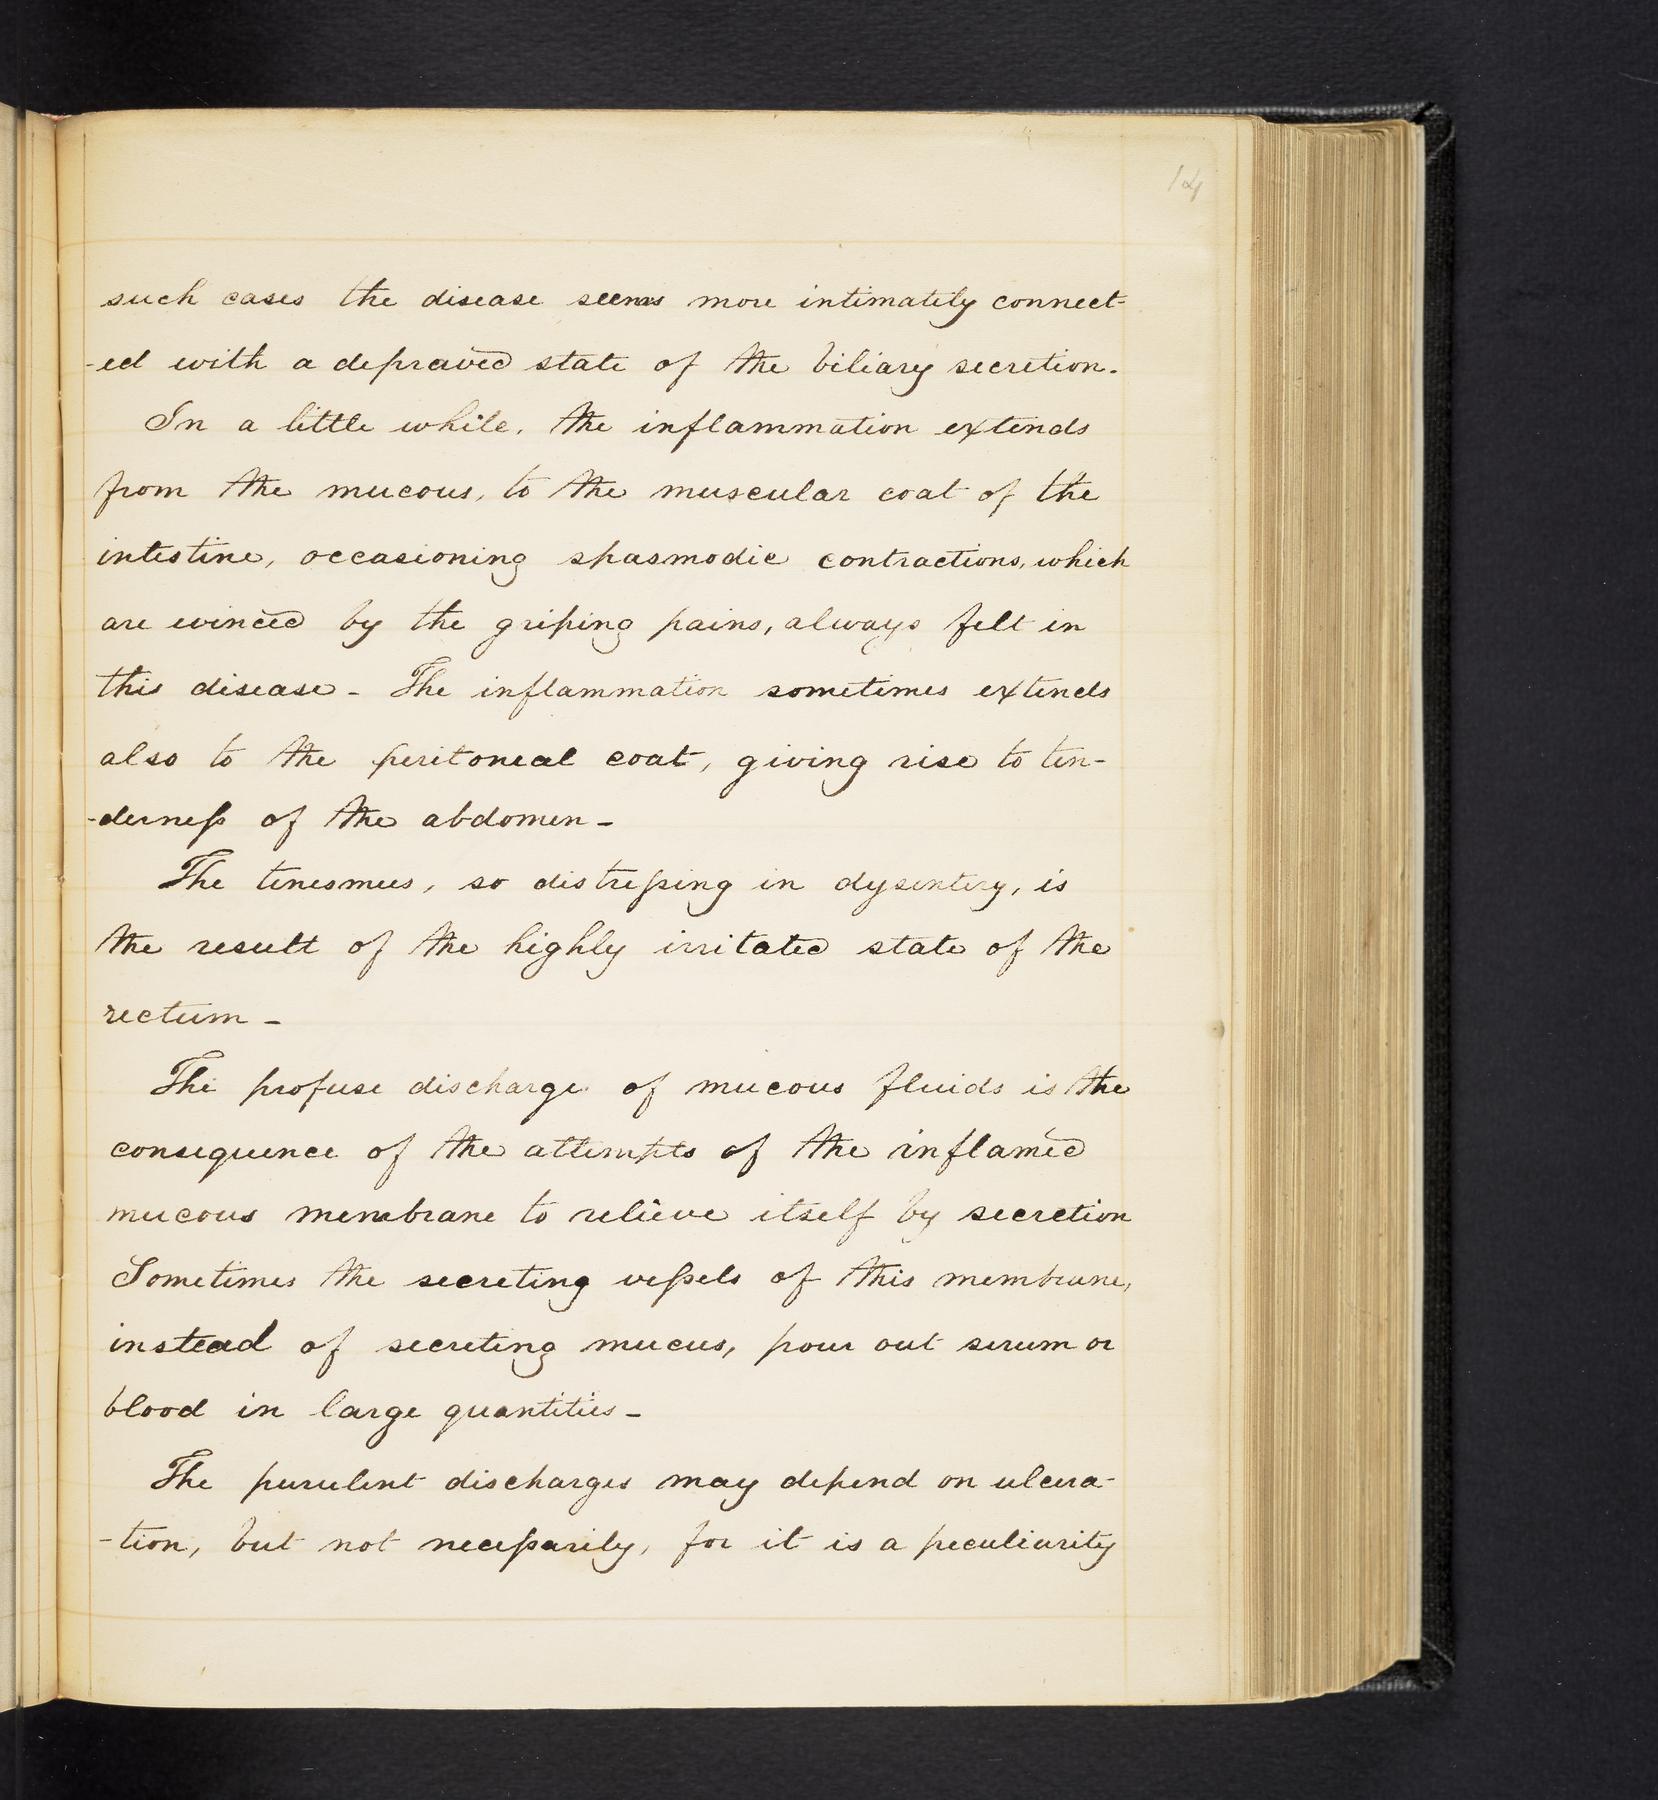 14
such cases the disease seems more intimately connect-
-ed with a depraved state of the biliary secretion.
In a little while, the inflammation extends
from the mucous, to the muscular coat of the
intestine, occasioning spasmodic contractions, which
are evinced by the griping pains, always felt in
this disease - The inflammation sometimes extends
also to the peritoneal coat, giving rise to ten-
-derneſs of the abdomen -
The tenesmus, so distreſsing in dysentery, is
the result of the highly irritated state of the
rectum -
The profuse discharge of mucous fluids is the
consequence of the attempts of the inflamed
mucous membrane to relieve itself by secretion
Sometimes the secreting veſsels of this membrane,
instead of secreting mucus, pour out serum or
blood in large quantities -
The purulent discharges may depend on ulcera-
-tion, but not neceſsarily, for it is a peculiarity